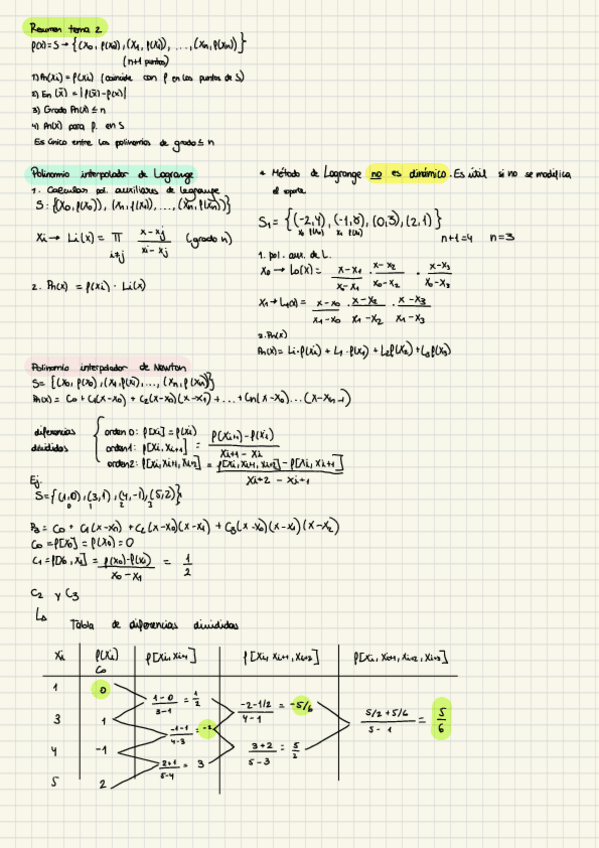 Resumen tema 2
p(x)=S → {(x0, p(x0)), (x1, p(x1)), ..., (xn, p(xn))}
(n+1 puntos)
1) Pn(xi) = p(xi) (coincide con p en los puntos de S)
2) En(x̄) = |p(x̄)-p(x)|
3) Grado Pn(x) ≤ n
4) Pn(x) para p. en S
Es único entre los polinomios de grado ≤ n
Polinomio interpolador de Lagrange
1. Calcular pol. auxiliares de Lagrange
S: {(x0, p(x0)), (x1, p(x1)), ..., (xn, p(xn))}
xi → Li(x) = π i≠j (x-xj)/(xi-xj) (grado n)
2. Pn(x) = p(xi) · Li(x)
* Método de Lagrange no es dinámico. Es útil si no se modifica
el soporte
S1 = {(-2,4), (-1,8), (0,3), (2,1)}
x0 p(x0) x1 p(x1)
n+1=4 n=3
1. pol. aux. de L.
x0 → L0(x) = (x-x1)/(x0-x1) · (x-x2)/(x0-x2) · (x-x3)/(x0-x3)
x1 → L1(x) = (x-x0)/(x1-x0) · (x-x2)/(x1-x2) · (x-x3)/(x1-x3)
2. Pn(x)
Pn(x) = Li·p(xi) + L1·p(x1) + L2p(x2) + L3p(x3)
Polinomio interpolador de Newton
S= {(x0, p(x0), (x1, p(xi), ..., (xn, p(xn)}
Pn(x) = C0 + C1(x-x0) + C2(x-x0)(x-x1) + ... + Cn(x-x0)...(x-xn-1)
diferencias
divididas
orden 0: p[xi] = p(xi)
orden 1: p[xi, xi+1] = (p(xi+1)-p(xi))/(xi+1-xi)
orden 2: p[xi, xi+1, xi+2] = (p[xi, xi+1, xi+2] - p[xi, xi+1])/(xi+2-xi+1)
Ej.
S={(1,0), (3,1), (4,-1), (5,2)}
0 1 2 3
P3 = C0 + C1(x-x0) + C2(x-x0)(x-x1) + C3(x-x0)(x-x1)(x-x2)
C0 = p[x0] = p(x0) = 0
C1 = p[x0, x1] = (p(x0)-p(x1))/(x0-x1) = 1/2
C2 y C3
↳
Tabla de diferencias divididas
xi p(xi) p[xi, xi+1] p[xi, xi+1, xi+2] p[xi, xi+1, xi+2, xi+3]
C0
1 0
(1-0)/(3-1) = 1/2
3 1 (-2-1/2)/(4-1) = -5/6
(-1-1)/(4-3) = -2 (5/2+5/6)/(5-1) = 5/6
4 -1 (3+2)/(5-3) = 5/2
(2+1)/(5-4) = 3
5 2